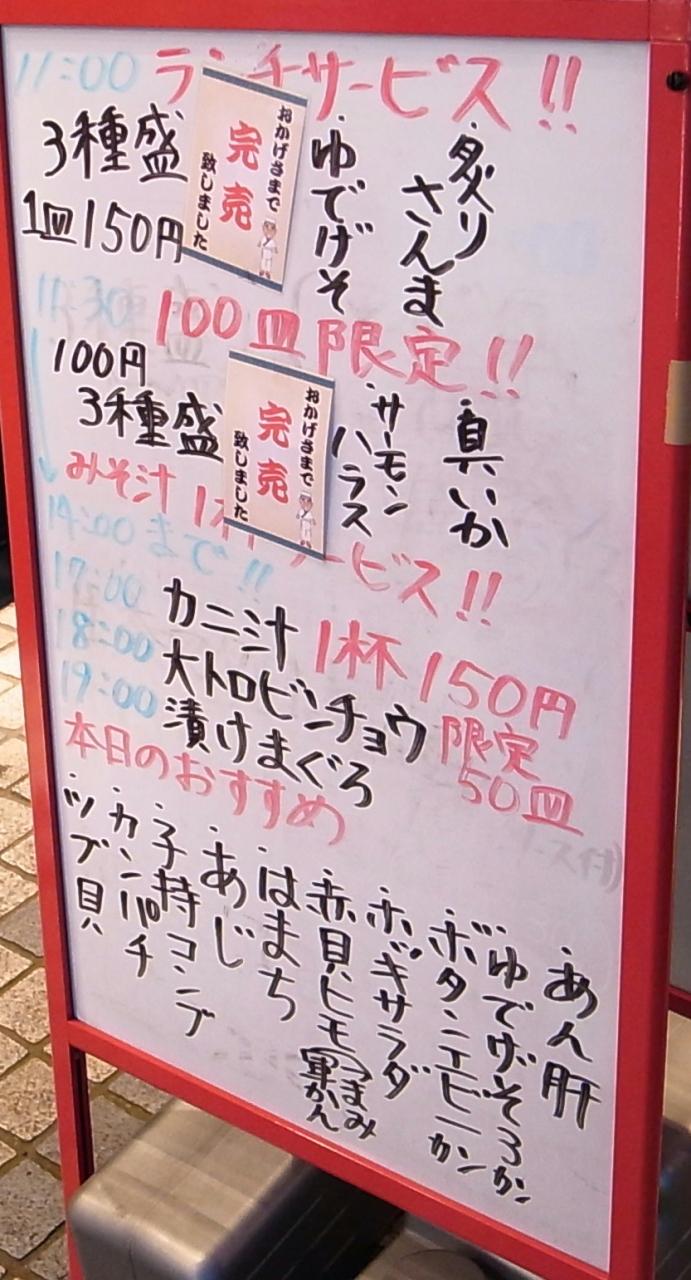 11:00 ランチサービス!!
3種盛
1皿150円
おかげさまで
完売
致しました
・炙り
さんま
・ゆでげそ
11:30 100皿限定!!
100円
3種盛
おかげさまで
完売
致しました
・真いか
・サーモン
ハラス
みそ汁 1杯サービス!!
14:00まで!!
17:00 カニ汁 1杯150円
18:00 大トロビンチョウ 限定
19:00 漬けまぐろ 50皿
本日のおすすめ
・あん肝
・ゆでげそ3カン
・ボタンエビ一カン
・ホッキサラダ
・赤貝ヒモ(つまみ
軍かん
・はまち
・あじ
・子持コンブ
・カンパチ
・ツブ貝